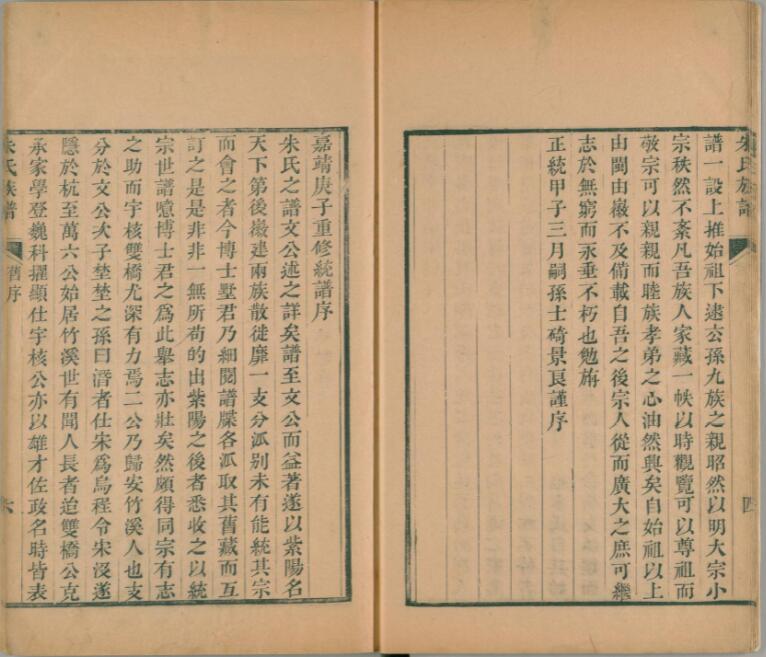 朱氏族譜
四
譜一設上推始祖下逮公孫九族之親昭然以明大宗小
宗秩然不紊凡吾族人家藏一帙以時觀覽可以尊祖而
敬宗可以親親而睦族孝弟之心油然興矣自始祖以上
由閩由徽不及備載自吾之後宗人從而廣大之庶可繼
志於無窮而永垂不朽也勉旃
正統甲子三月嗣孫士琦景良謹序
嘉靖庚子重修統譜序
朱氏之譜文公述之詳矣譜至文公而益著遂以紫陽名
天下第後徽建兩族散徙靡一支分派別未有能統其宗
而會之者今博士墅君乃細閱譜牒各派取其舊藏而互
訂之是是非非一無所苟的出紫陽之後者悉收之以統
宗世譜噫博士君之為此舉志亦壯矣然頗得同宗有志
之助而宇核雙橋尤深有力焉二公乃歸安竹溪人也支
分於文公次子埜埜之孫曰潛者仕宋爲烏程令宋沒遂
隱於杭至萬六公始居竹溪世有聞人長者迨雙橋公克
承家學登巍科擢顯仕宇核公亦以雄才佐政名時皆表
朱氏族譜
舊序
六